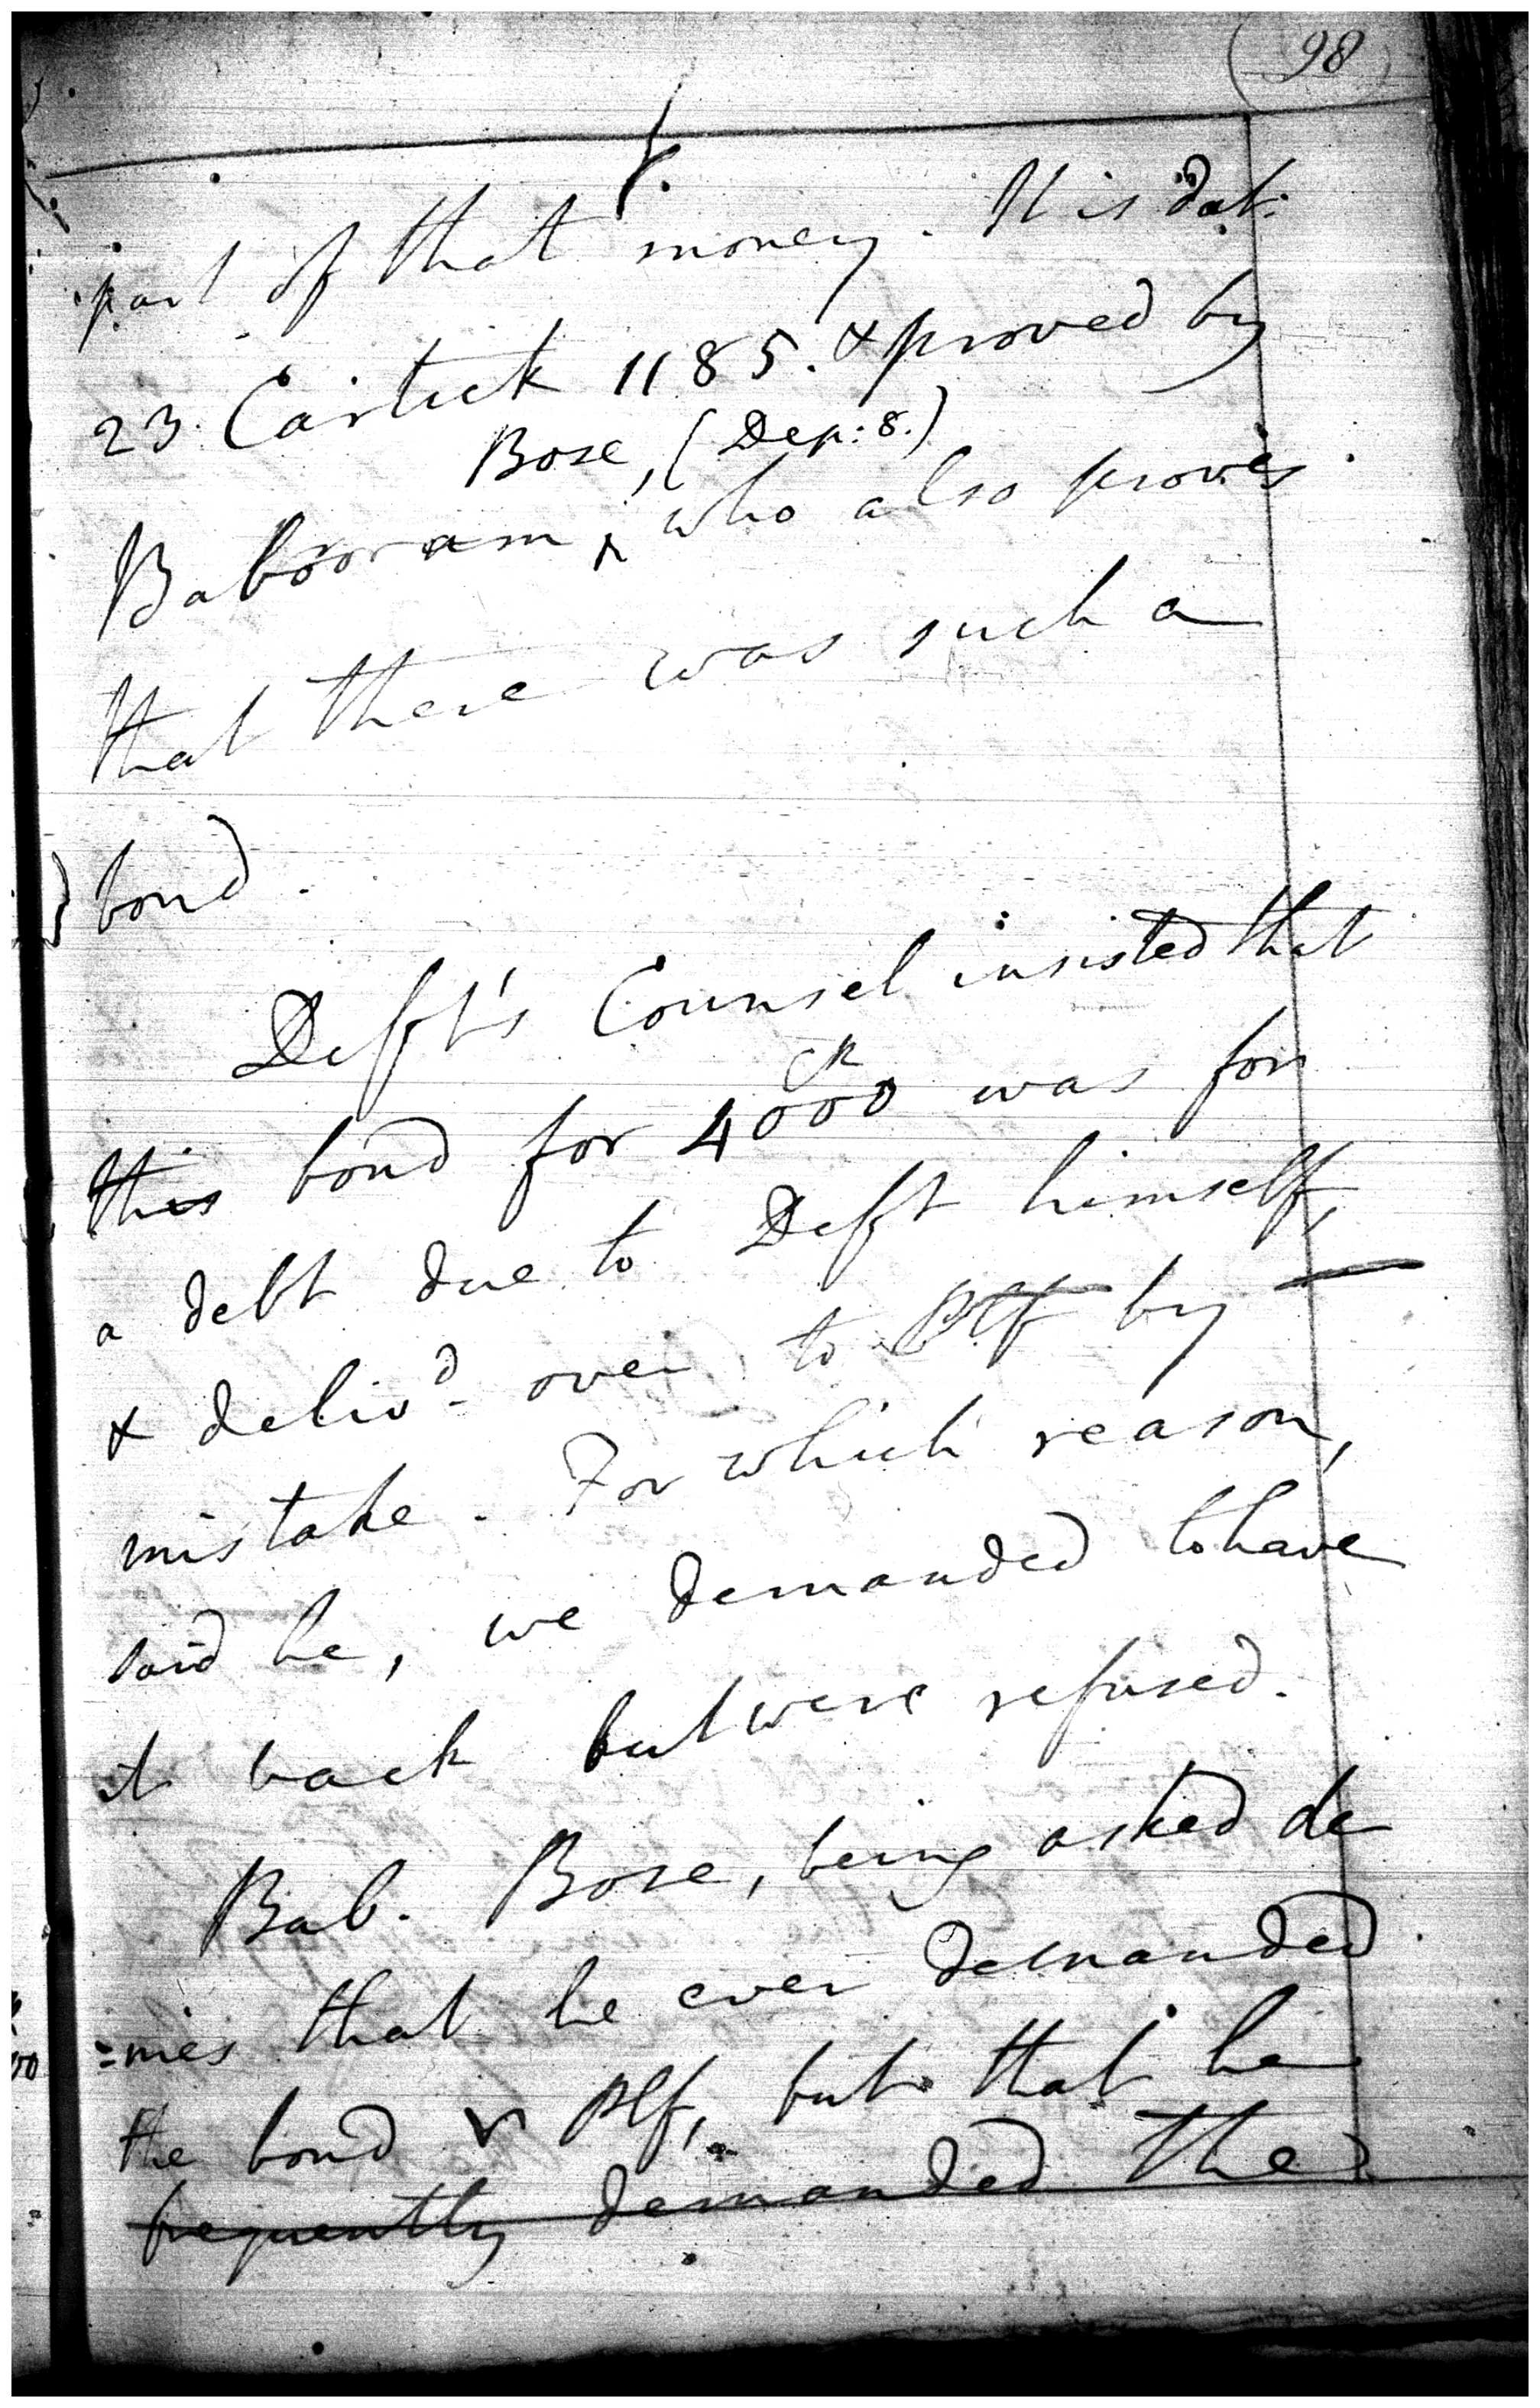 98
part of that money. It is dat:
23. Cartick 1185. & proved by
Bose, (Dep: 8.)
Babooram ‸ who also proves
that there was such a
bond.
Deft's Counsel insisted that
CR
this bond for 4000 was for
a debt due to Deft himself,
& deliv^d over to Plf by —
mistake. For which reason,
said he, we demanded to have
it back but were refused.
Bab. Bose, being asked de
=nies that he ever demanded
the bond Plf, but that he
frequently demanded the